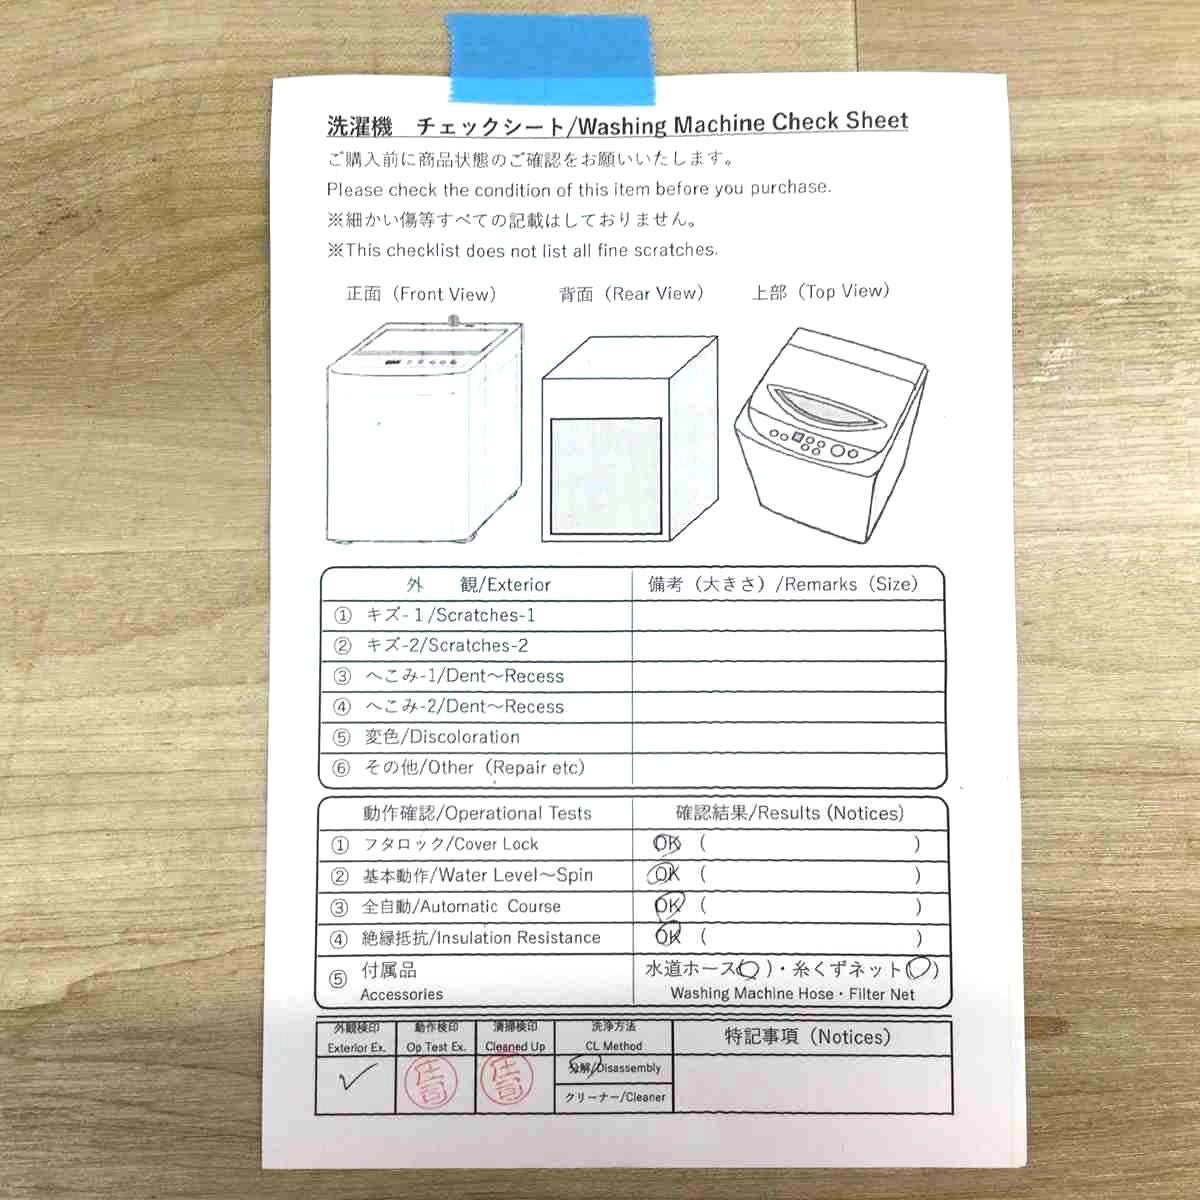 洗濯機　チェックシート/Washing Machine Check Sheet
ご購入前に商品状態のご確認をお願いいたします。
Please check the condition of this item before you purchase.
※細かい傷等すべての記載はしておりません。
※This checklist does not list all fine scratches.
正面（Front View） 背面（Rear View） 上部（Top View）
外　観/Exterior 備考（大きさ）/Remarks（Size）
① キズ-1/Scratches-1
② キズ-2/Scratches-2
③ へこみ-1/Dent～Recess
④ へこみ-2/Dent～Recess
⑤ 変色/Discoloration
⑥ その他/Other（Repair etc）
動作確認/Operational Tests 確認結果/Results (Notices)
① フタロック/Cover Lock OK ( )
② 基本動作/Water Level～Spin OK ( )
③ 全自動/Automatic Course OK ( )
④ 絶縁抵抗/Insulation Resistance OK ( )
⑤ 付属品 水道ホース(○)・糸くずネット(○)
Accessories Washing Machine Hose・Filter Net
外観検印 動作検印 清掃検印 洗浄方法 特記事項（Notices）
Exterior Ex. Op Test Ex. Cleaned Up CL Method
✓ 庄司 庄司 分解/Disassembly
クリーナー/Cleaner